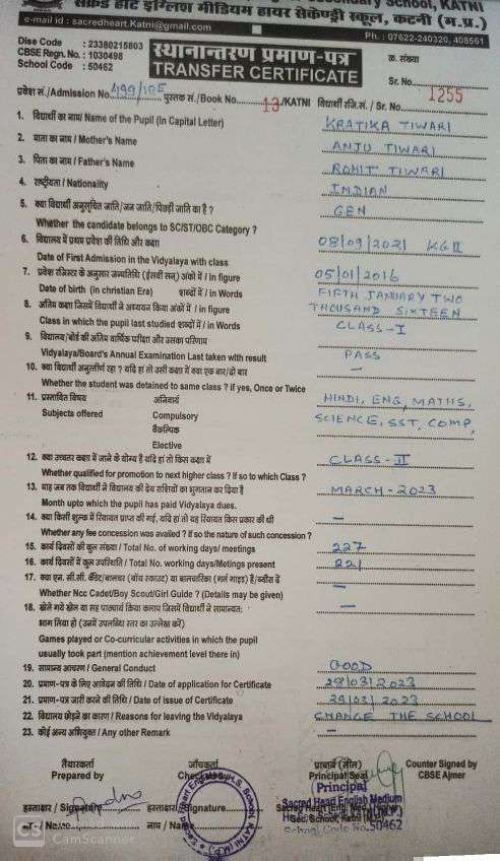 Secondary School, KATNI
सेक्रेड हार्ट इंग्लिश मीडियम हायर सेकेण्ड्री स्कूल, कटनी (म.प्र.)
e-mail id : sacredheart.Katni@gmail.com
Ph. : 07622-240320, 408561
Dise Code : 23380215803
CBSE Regn. No. : 1030498
School Code : 50462
स्थानान्तरण प्रमाण-पत्र
TRANSFER CERTIFICATE
क्र. संख्या
Sr. No.
प्रवेश सं./Admission No. 499/105 पुस्तक सं./Book No. 13/KATNI विद्यार्थी रजि.सं. / Sr. No. 1255
1. विद्यार्थी का नाम/ Name of the Pupil (In Capital Letter) KRATIKA TIWARI
2. माता का नाम / Mother's Name ANJU TIWARI
3. पिता का नाम / Father's Name ROHIT TIWARI
4. राष्ट्रीयता / Nationality INDIAN
5. क्या विद्यार्थी अनुसूचित जाति/जन जाति/पिछड़ी जाति का है ? GEN
Whether the candidate belongs to SC/ST/OBC Category ?
6. विद्यालय में प्रथम प्रवेश की तिथि और कक्षा 08/09/2021 KG II
Date of First Admission in the Vidyalaya with class
7. प्रवेश रजिस्टर के अनुसार जन्मतिथि (ईसवीं सन्) अंकों में / in figure 05/01/2016
Date of birth (in christian Era) शब्दों में / in Words FIFTH JANUARY TWO
THOUSAND SIXTEEN
8. अंतिम कक्षा जिसमें विद्यार्थी ने अध्ययन किया अंकों में / in figure
Class in which the pupil last studied शब्दों में / in Words CLASS-I
9. विद्यालय/बोर्ड की अंतिम वार्षिक परीक्षा और उसका परिणाम
Vidyalaya/Board's Annual Examination Last taken with result PASS
10. क्या विद्यार्थी अनुत्तीर्ण रहा ? यदि हां तो उसी कक्षा में क्या एक बार/दो बार —
Whether the student was detained to same class ? if yes, Once or Twice
11. प्रस्तावित विषय अनिवार्य HINDI, ENG, MATHS,
Subjects offered Compulsory SCIENCE, SST, COMP,
वैकल्पिक
Elective
12. क्या उच्चतर कक्षा में जाने के योग्य है यदि हां तो किस कक्षा में CLASS-II
Whether qualified for promotion to next higher class ? If so to which Class ?
13. माह जब तक विद्यार्थी ने विद्यालय की देय राशियों का भुगतान कर दिया है MARCH-2023
Month upto which the pupil has paid Vidyalaya dues.
14. क्या किसी शुल्क में रियायत प्राप्त की गई, यदि हां तो वह रियायत किस प्रकार की थी —
Whether any fee concession was availed ? If so the nature of such concession ?
15. कार्य दिवसों की कुल संख्या / Total No. of working days/ meetings 227
16. कार्य दिवसों में कुल उपस्थिति / Total No. working days/Metings present 221
17. क्या एन.सी.सी. कैडेट/बालचर (बॉय स्काउट) या बालचारिका (गर्ल गाइड) है/ब्यौरा दें —
Whether Ncc Cadet/Boy Scout/Girl Guide ? (Details may be given)
18. खेले गये खेल या सह पाठ्यचर्या क्रिया कलाप जिसमें विद्यार्थी ने सामान्यतः —
भाग लिया हो (उनमें उपलब्धि स्तर का उल्लेख करें)
Games played or Co-curricular activities in which the pupil
usually took part (mention achievement level there in)
19. सामान्य आचरण / General Conduct GOOD
20. प्रमाण-पत्र के लिए आवेदन की तिथि / Date of application for Certificate 28/03/2023
21. प्रमाण-पत्र जारी करने की तिथि / Date of issue of Certificate 29/03/2023
22. विद्यालय छोड़ने का कारण / Reasons for leaving the Vidyalaya CHANGE THE SCHOOL
23. कोई अन्य अभियुक्त / Any other Remark —
तैयारकर्ता जाँचकर्ता प्राचार्य (सील) Counter Signed by
Prepared by Checked by Principal Seal CBSE Ajmer
(Principal)
Sacred Heart English Medium
हस्ताक्षर / Signature हस्ताक्षर/Signature
Sec. School, KATNI (M.P.)
नं./No. नाम / School Code No. 50462
CS CamScanner